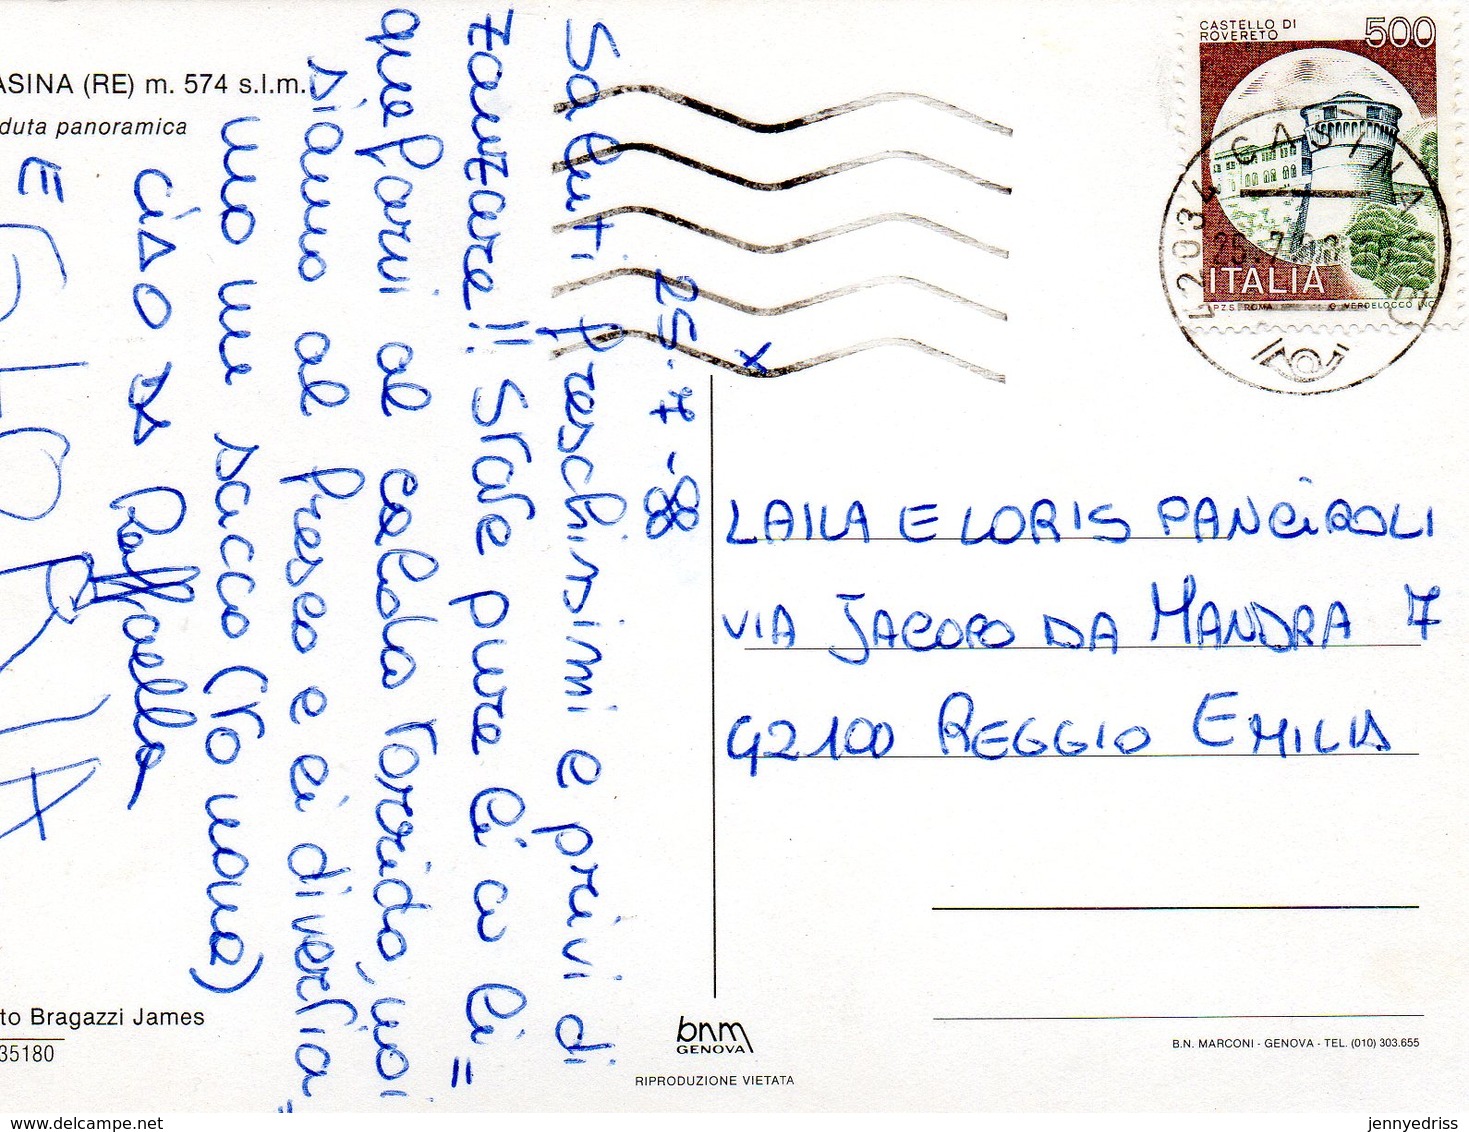 ASINA (RE) m. 574 s.l.m.
duta panoramica
25-7-88
Saluti freschissimi e privi di
zanzare!! State pure lì a li=
quefarvi al caldo torrido, noi
siamo al fresco e ci divertia=
mo un sacco (to mona)
CIAO DA Raffaella
E GLORIA
to Bragazzi James
35180
CASTELLO DI
ROVERETO
500
ITALIA
I.P.Z.S. ROMA
G. VERDELOCCO INC.
42034 CASINA
25.7.88
X
LAILA E LORIS PANCIROLI
VIA JACOPO DA MANDRA 7
42100 REGGIO EMILIA
bnm
GENOVA
RIPRODUZIONE VIETATA
B.N. MARCONI - GENOVA - TEL. (010) 303.655
www.delcampe.net
jennyedriss